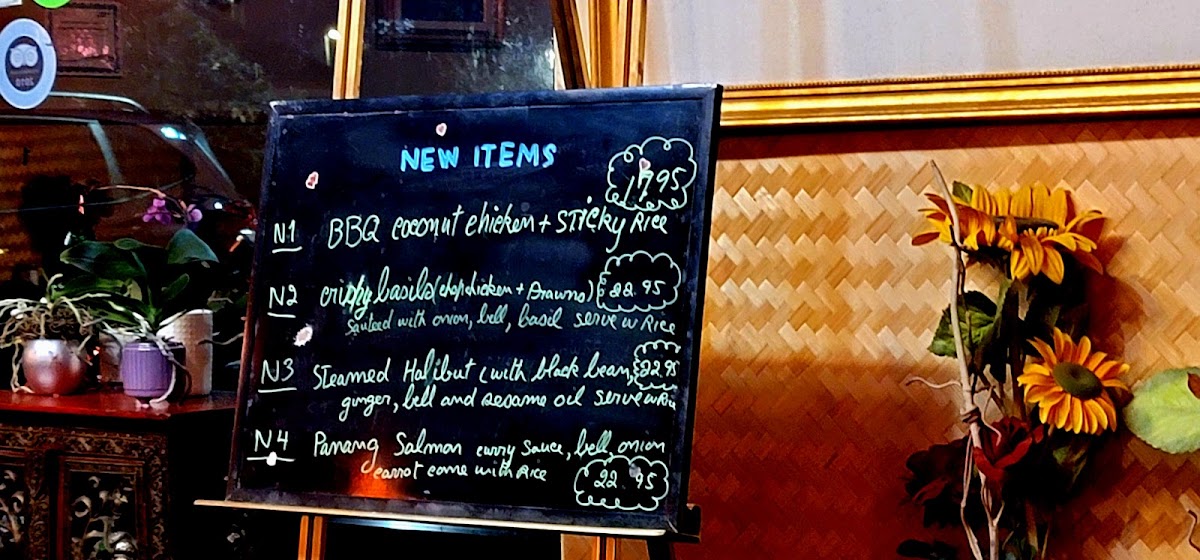 NEW ITEMS
17.95
N1 BBQ coconut chicken + Sticky Rice
N2 crispy basils (chopchicken + Prawns) 22.95
sauteed with onion, bell, Basil serve w Rice
N3 Steamed Halibut (with black bean, 22.95
ginger, bell and sesame oil serve w Rice
N4 Panang Salmon curry sauce, bell, onion
carrot come with Rice 22.95